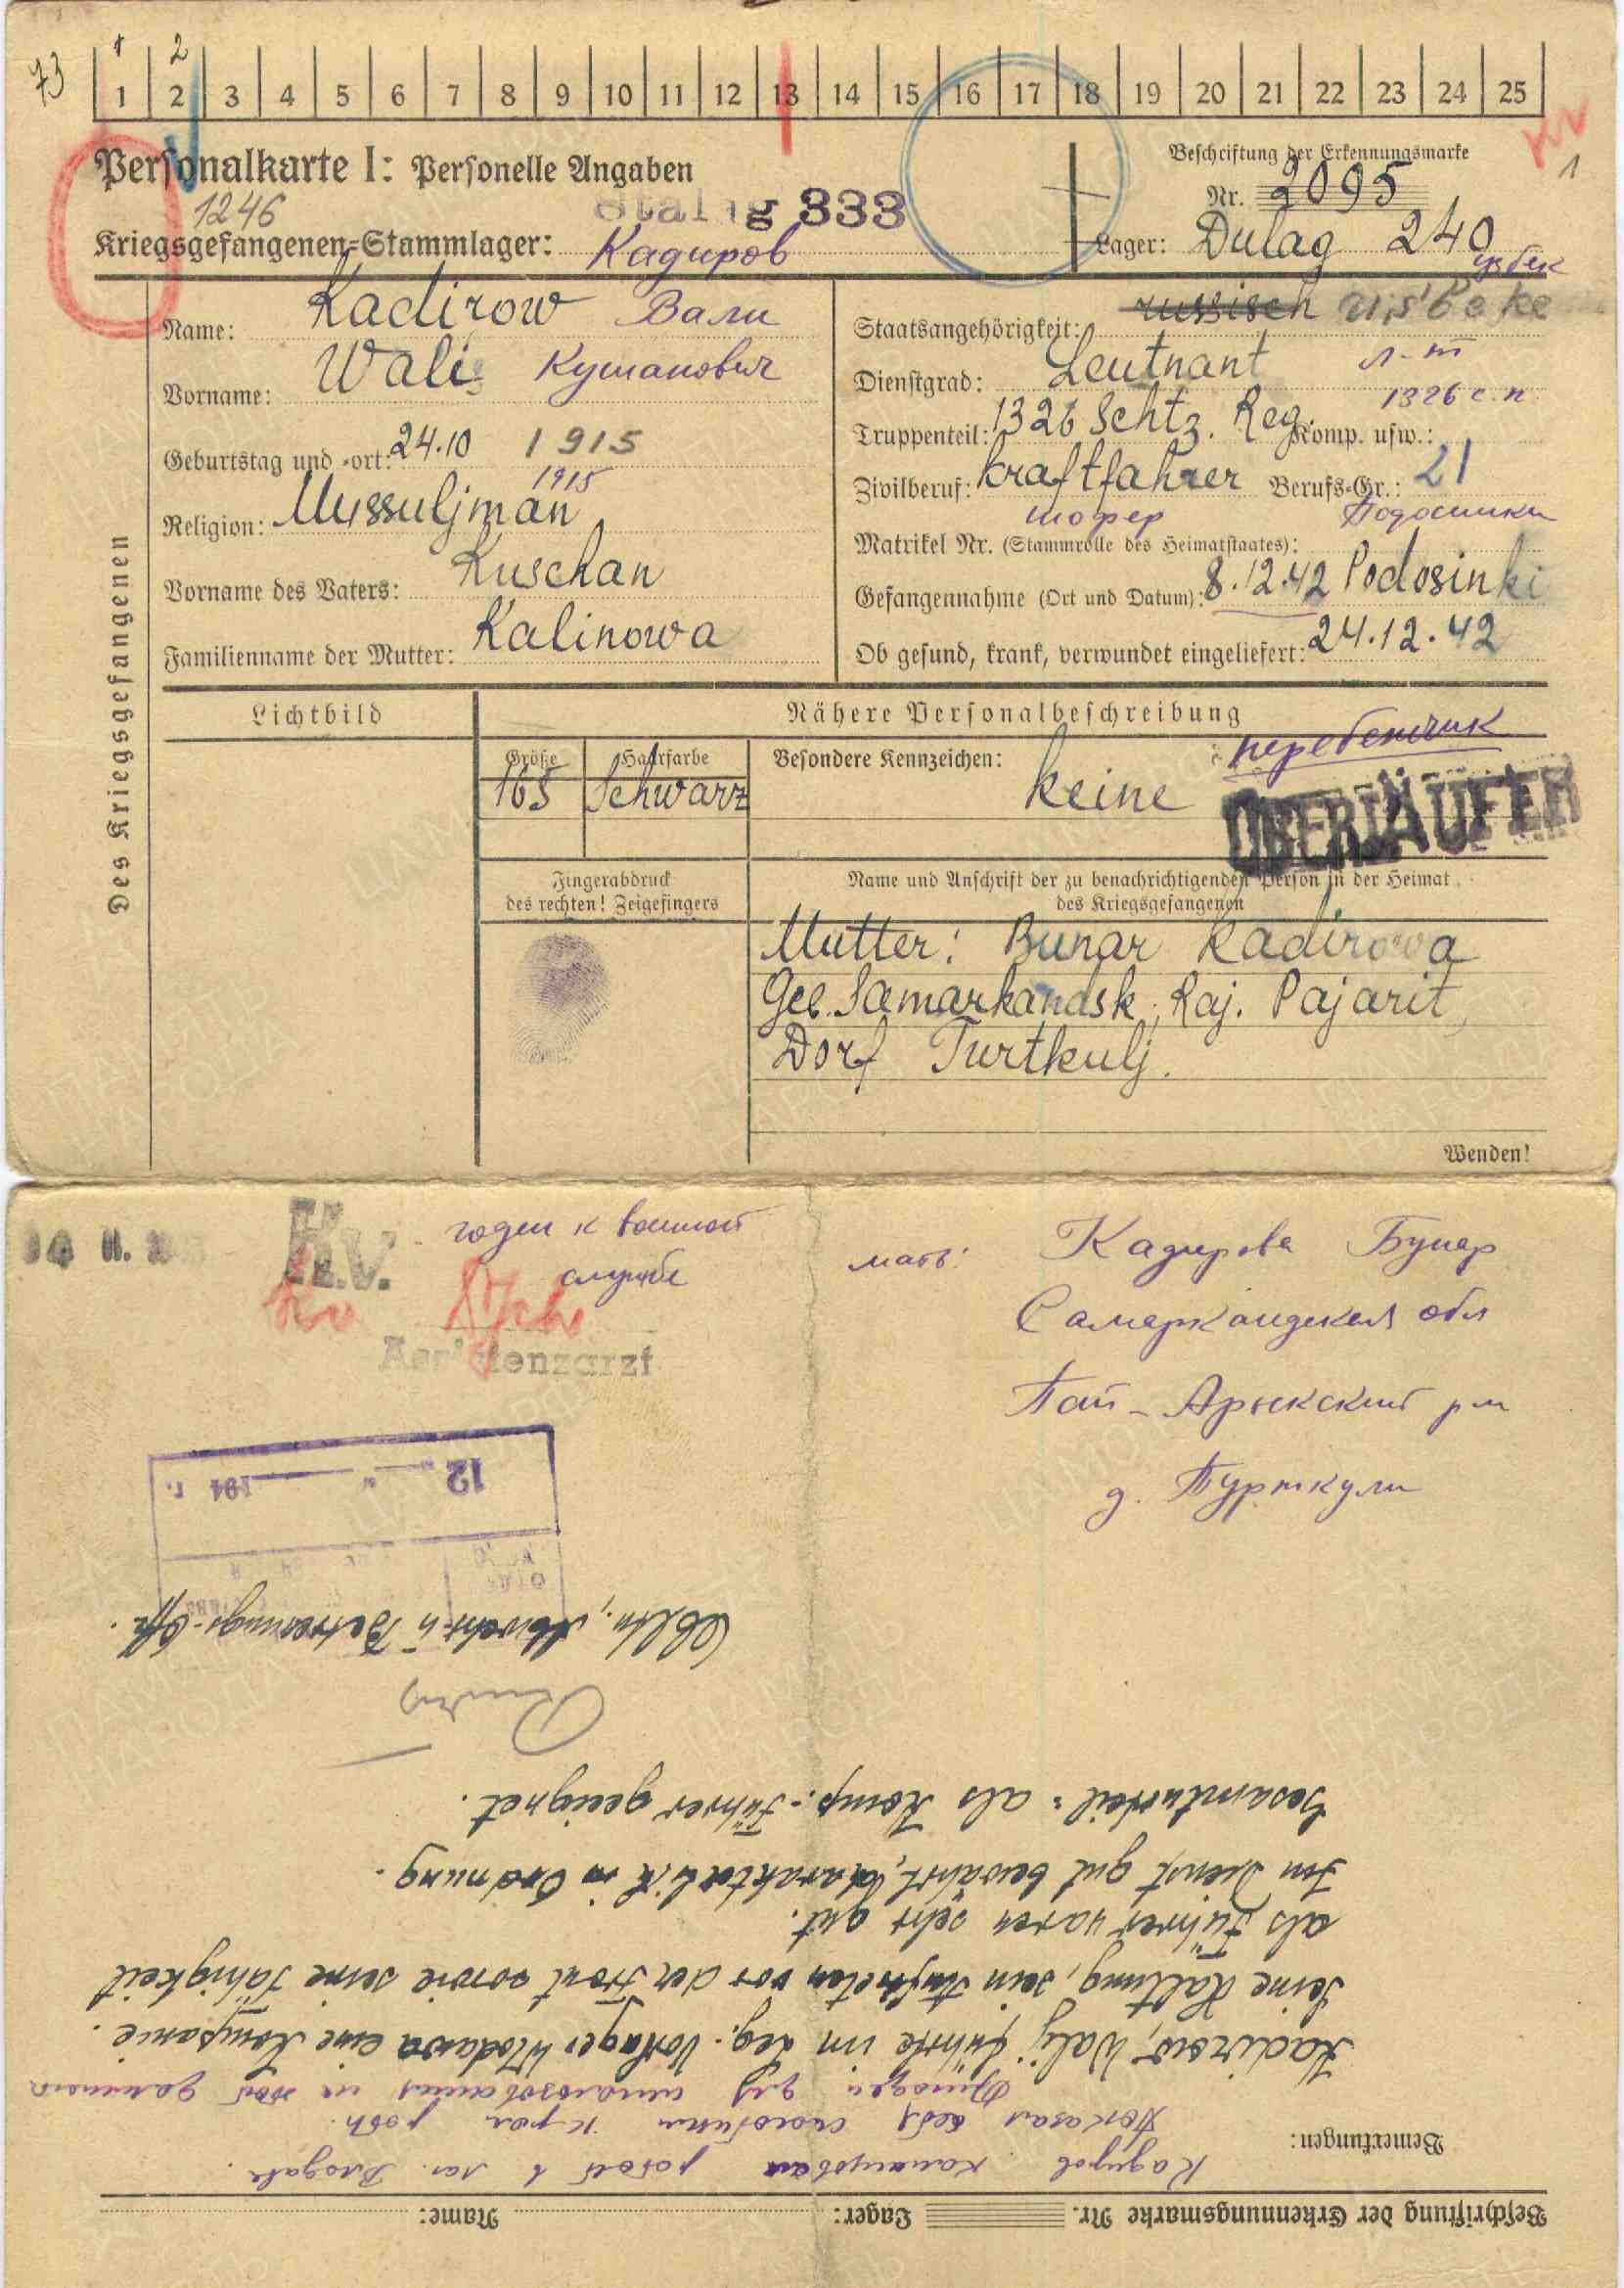 73
1 2
1 2 3 4 5 6 7 8 9 10 11 12 13 14 15 16 17 18 19 20 21 22 23 24 25
Personalkarte I: Personelle Angaben
Beschriftung der Erkennungsmarke
1
1246
Stalag 333
Nr. 2095
Kriegsgefangenen-Stammlager: Кадиров
Lager: Dulag 240
узбек
Des Kriegsgefangenen
Name: Kadirow Вали
Vorname: Wali Кушанович
Geburtstag und -ort: 24.10 1915
1915
Religion: Mussuljman
Vorname des Vaters: Kuschan
Familienname der Mutter: Kalinowa
Staatsangehörigkeit: russisch usbeke
Dienstgrad: Leutnant л-т
1326 с.п.
Truppenteil: 1326 Schtz. Reg. Komp. usw.:
Zivilberuf: Kraftfahrer Berufs-Gr.: 21
шофер Подосинки
Matrikel Nr. (Stammrolle des Heimatstaates):
Gefangennahme (Ort und Datum): 8.12.42 Podosinki
Ob gesund, krank, verwundet eingeliefert: 24.12.42
Lichtbild
Nähere Personalbeschreibung
перебежчик
Größe Haarfarbe Besondere Kennzeichen:
165 Schwarz keine
ÜBERLÄUFER
Fingerabdruck
des rechten! Zeigefingers
Name und Anschrift der zu benachrichtigenden Person in der Heimat
des Kriegsgefangenen
Mutter: Bunar Kadirowa
Geb. Samarkandsk, Raj. Pajarit,
Dorf Turtkulj.
Wenden!
K.v. годен к военной
службе
kv
Assistenzarzt
мать: Кадирова Бунар
Самаркандская обл
Пай-Арыкский р-н
д. Турткули
12 194 г.
Beschriftung der Erkennungsmarke Nr. Lager: Name:
Bemerkungen:
Кадиров командовал ротой в лаг. Влодава.
Показал себя способным к-ром роты.
Пригоден для использования на этой должности
Kadirow, Walij führte im Leg.-Vorlager Wlodawa eine Kompanie.
Seine Haltung, sein Auftreten vor der Front sowie seine Fähigkeit
als Führer waren sehr gut.
Im Dienst gut bewährt, charakterlich in Ordnung.
Gesamturteil: als Komp.-Führer geeignet.
Oblt. u. Abwehr- u. Betreuungs-Offz.